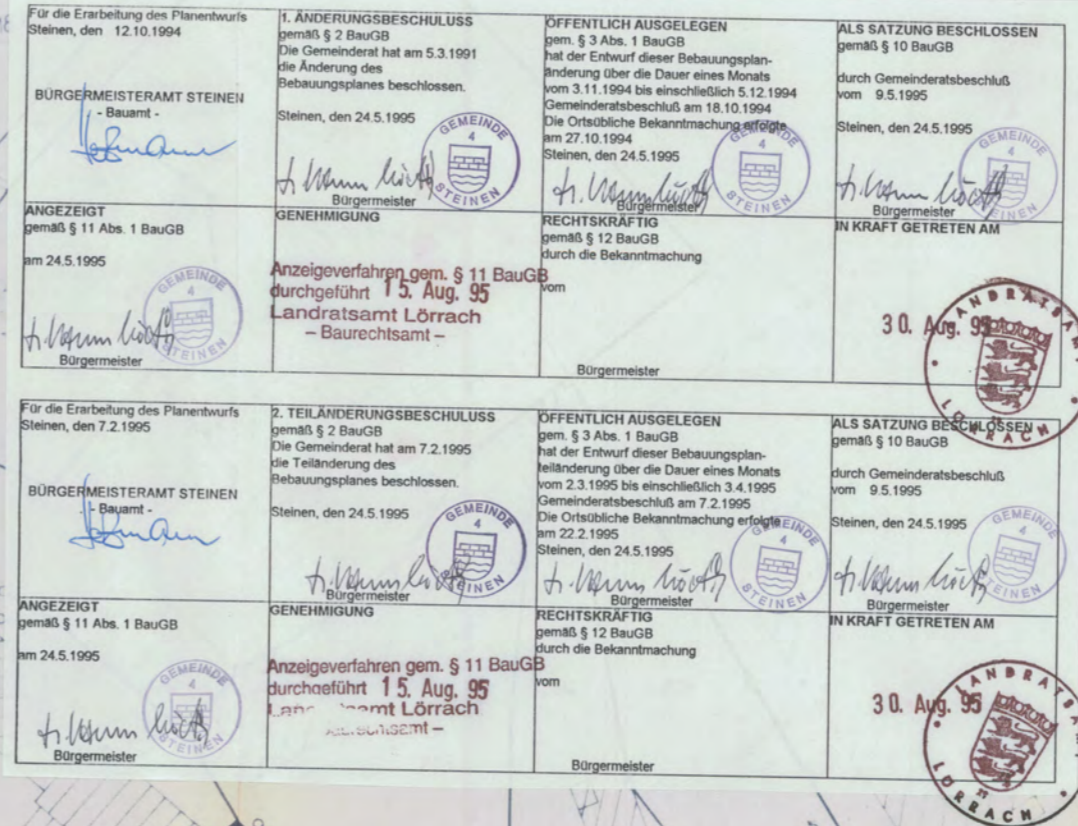 Für die Erarbeitung des Planentwurfs
Steinen, den 12.10.1994
BÜRGERMEISTERAMT STEINEN
- Bauamt -
1. ÄNDERUNGSBESCHULUSS
gemäß § 2 BauGB
Die Gemeinderat hat am 5.3.1991
die Änderung des
Bebauungsplanes beschlossen.
Steinen, den 24.5.1995
GEMEINDE
4
STEINEN
Bürgermeister
ÖFFENTLICH AUSGELEGEN
gem. § 3 Abs. 1 BauGB
hat der Entwurf dieser Bebauungsplan-
änderung über die Dauer eines Monats
vom 3.11.1994 bis einschließlich 5.12.1994
Gemeinderatsbeschluß am 18.10.1994
Die Ortsübliche Bekanntmachung erfolgte
am 27.10.1994
Steinen, den 24.5.1995
GEMEINDE
4
STEINEN
Bürgermeister
ALS SATZUNG BESCHLOSSEN
gemäß § 10 BauGB
durch Gemeinderatsbeschluß
vom 9.5.1995
Steinen, den 24.5.1995
GEMEINDE
4
STEINEN
Bürgermeister
ANGEZEIGT
gemäß § 11 Abs. 1 BauGB
am 24.5.1995
GEMEINDE
4
STEINEN
Bürgermeister
GENEHMIGUNG
Anzeigeverfahren gem. § 11 BauGB
durchgeführt 15. Aug. 95
Landratsamt Lörrach
– Baurechtsamt –
RECHTSKRÄFTIG
gemäß § 12 BauGB
durch die Bekanntmachung
vom
Bürgermeister
IN KRAFT GETRETEN AM
30. Aug. 95
LANDRATSAMT
LÖRRACH
Für die Erarbeitung des Planentwurfs
Steinen, den 7.2.1995
BÜRGERMEISTERAMT STEINEN
- Bauamt -
2. TEILÄNDERUNGSBESCHULUSS
gemäß § 2 BauGB
Die Gemeinderat hat am 7.2.1995
die Teiländerung des
Bebauungsplanes beschlossen.
Steinen, den 24.5.1995
GEMEINDE
4
STEINEN
Bürgermeister
ÖFFENTLICH AUSGELEGEN
gem. § 3 Abs. 1 BauGB
hat der Entwurf dieser Bebauungsplan-
teiländerung über die Dauer eines Monats
vom 2.3.1995 bis einschließlich 3.4.1995
Gemeinderatsbeschluß am 7.2.1995
Die Ortsübliche Bekanntmachung erfolgte
am 22.2.1995
Steinen, den 24.5.1995
GEMEINDE
4
STEINEN
Bürgermeister
ALS SATZUNG BESCHLOSSEN
gemäß § 10 BauGB
durch Gemeinderatsbeschluß
vom 9.5.1995
Steinen, den 24.5.1995
GEMEINDE
4
STEINEN
Bürgermeister
ANGEZEIGT
gemäß § 11 Abs. 1 BauGB
am 24.5.1995
GEMEINDE
4
STEINEN
Bürgermeister
GENEHMIGUNG
Anzeigeverfahren gem. § 11 BauGB
durchgeführt 15. Aug. 95
Lörrach
RECHTSKRÄFTIG
gemäß § 12 BauGB
durch die Bekanntmachung
vom
Bürgermeister
IN KRAFT GETRETEN AM
30. Aug. 95
LANDRATSAMT
LÖRRACH